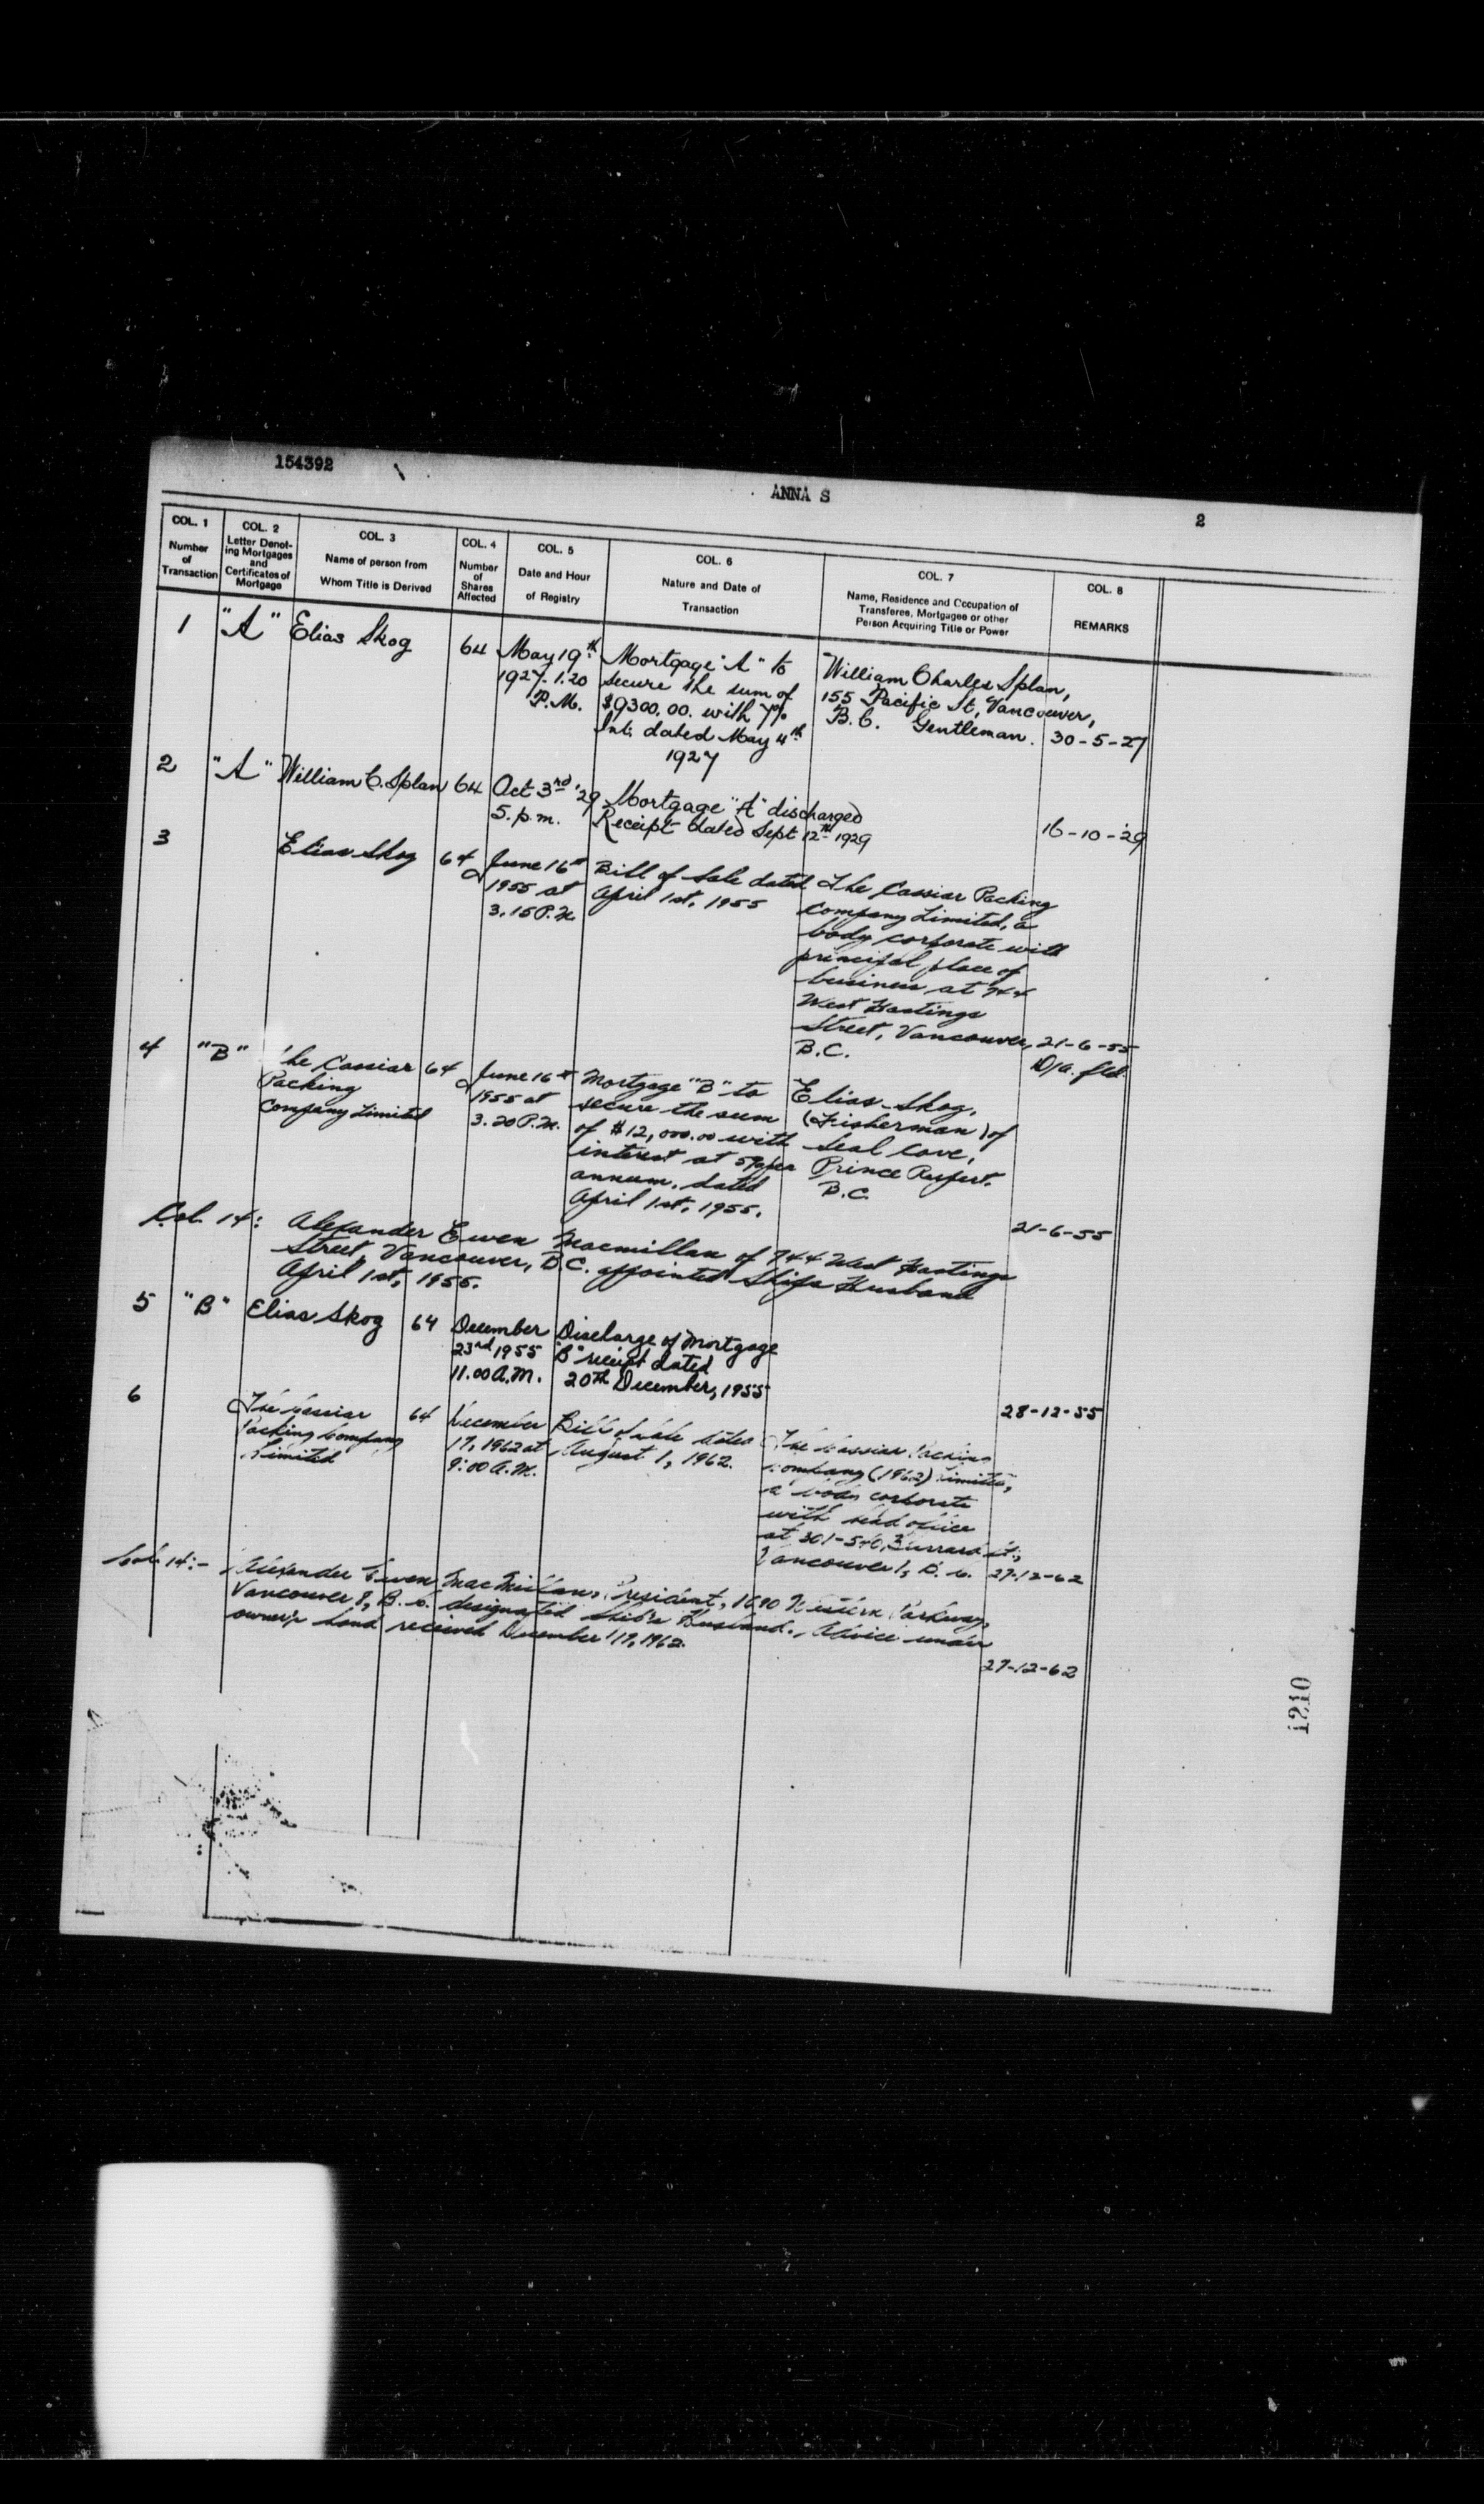 154392
ANNA S
2
COL. 1
Number
of
Transaction
COL. 2
Letter Denot-
ing Mortgages
and
Certificates of
Mortgage
COL. 3
Name of person from
Whom Title is Derived
COL. 4
Number
of
Shares
Affected
COL. 5
Date and Hour
of Registry
COL. 6
Nature and Date of
Transaction
COL. 7
Name, Residence and Occupation of
Transferee, Mortgagee or other
Person Acquiring Title or Power
COL. 8
REMARKS
1
"A"
Elias Skog
64
May 19th
1927. 1.20
P.M.
Mortgage "A" to
secure the sum of
$9300.00. with 7%
Int. dated May 4th
1927
William Charles Splan,
155 Pacific St, Vancouver,
B.C. Gentleman.
30-5-27
2
"A"
William C. Splan
64
Oct 3rd '29
5. p.m.
Mortgage "A" discharged
Receipt dated Sept 12th 1929
16-10-'29
3
Elias Skog
64
June 16th
1955 at
3.15 P.M.
Bill of Sale dated
April 1st, 1955
The Cassiar Packing
Company Limited, a
body corporate with
principal place of
business at 744
West Hastings
Street, Vancouver,
B.C.
21-6-55
D/a. fld.
4
"B"
The Cassiar
Packing
Company Limited
64
June 16th
1955 at
3.20 P.M.
Mortgage "B" to
secure the sum
of $12,000.00 with
interest at 5% per
annum. dated
April 1st, 1955.
Elias Skog,
(Fisherman) of
Seal Cove,
Prince Rupert.
B.C.
21-6-55
Col. 14:
Alexander Ewen Macmillan of 744 West Hastings
Street, Vancouver, B.C. appointed Ships Husband
April 1st, 1955.
5
"B"
Elias Skog
64
December
23rd 1955
11.00 A.M.
Discharge of Mortgage
"B" receipt dated
20th December, 1955
28-12-55
6
The Cassiar
Packing Company
Limited
64
December
17, 1962 at
9:00 A.M.
Bill of Sale dated
August 1, 1962.
The Cassiar Packing
Company (1962) Limited,
a body corporate
with head office
at 301-540, Burrard St.,
Vancouver 1, B.C.
27-12-62
Col. 14:-
Alexander Ewen MacMillan, President, 1690 Western Parkway,
Vancouver 8, B.C. designated Ship's Husband. Advice under
owner's hand received December 17, 1962.
27-12-62
1210